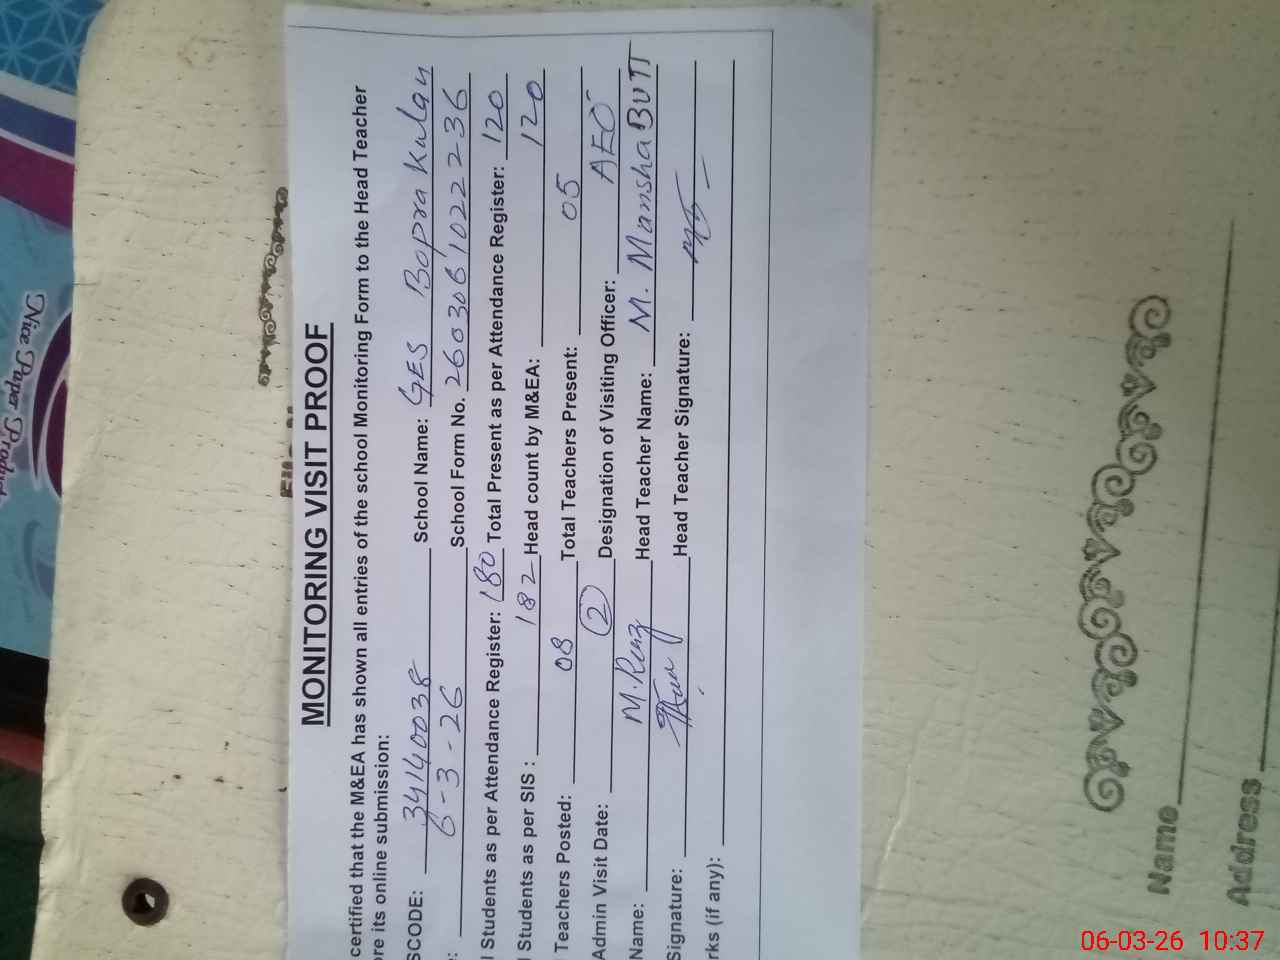 MONITORING VISIT PROOF
certified that the M&EA has shown all entries of the school Monitoring Form to the Head Teacher
re its online submission:
SCODE: 34140038 School Name: GES Bopra Kulan
6-3-26 School Form No. 260306102236
Students as per Attendance Register: 180 Total Present as per Attendance Register: 120
Students as per SIS : 182 Head count by M&EA: 120
Teachers Posted: 08 Total Teachers Present: 05
Admin Visit Date: 2 Designation of Visiting Officer: AEO
Name: M. Head Teacher Name: M. Mansha BUTT
Signature: Head Teacher Signature:
rks (if any):
Nice Paper Product
Name
Address
06-03-26 10:37